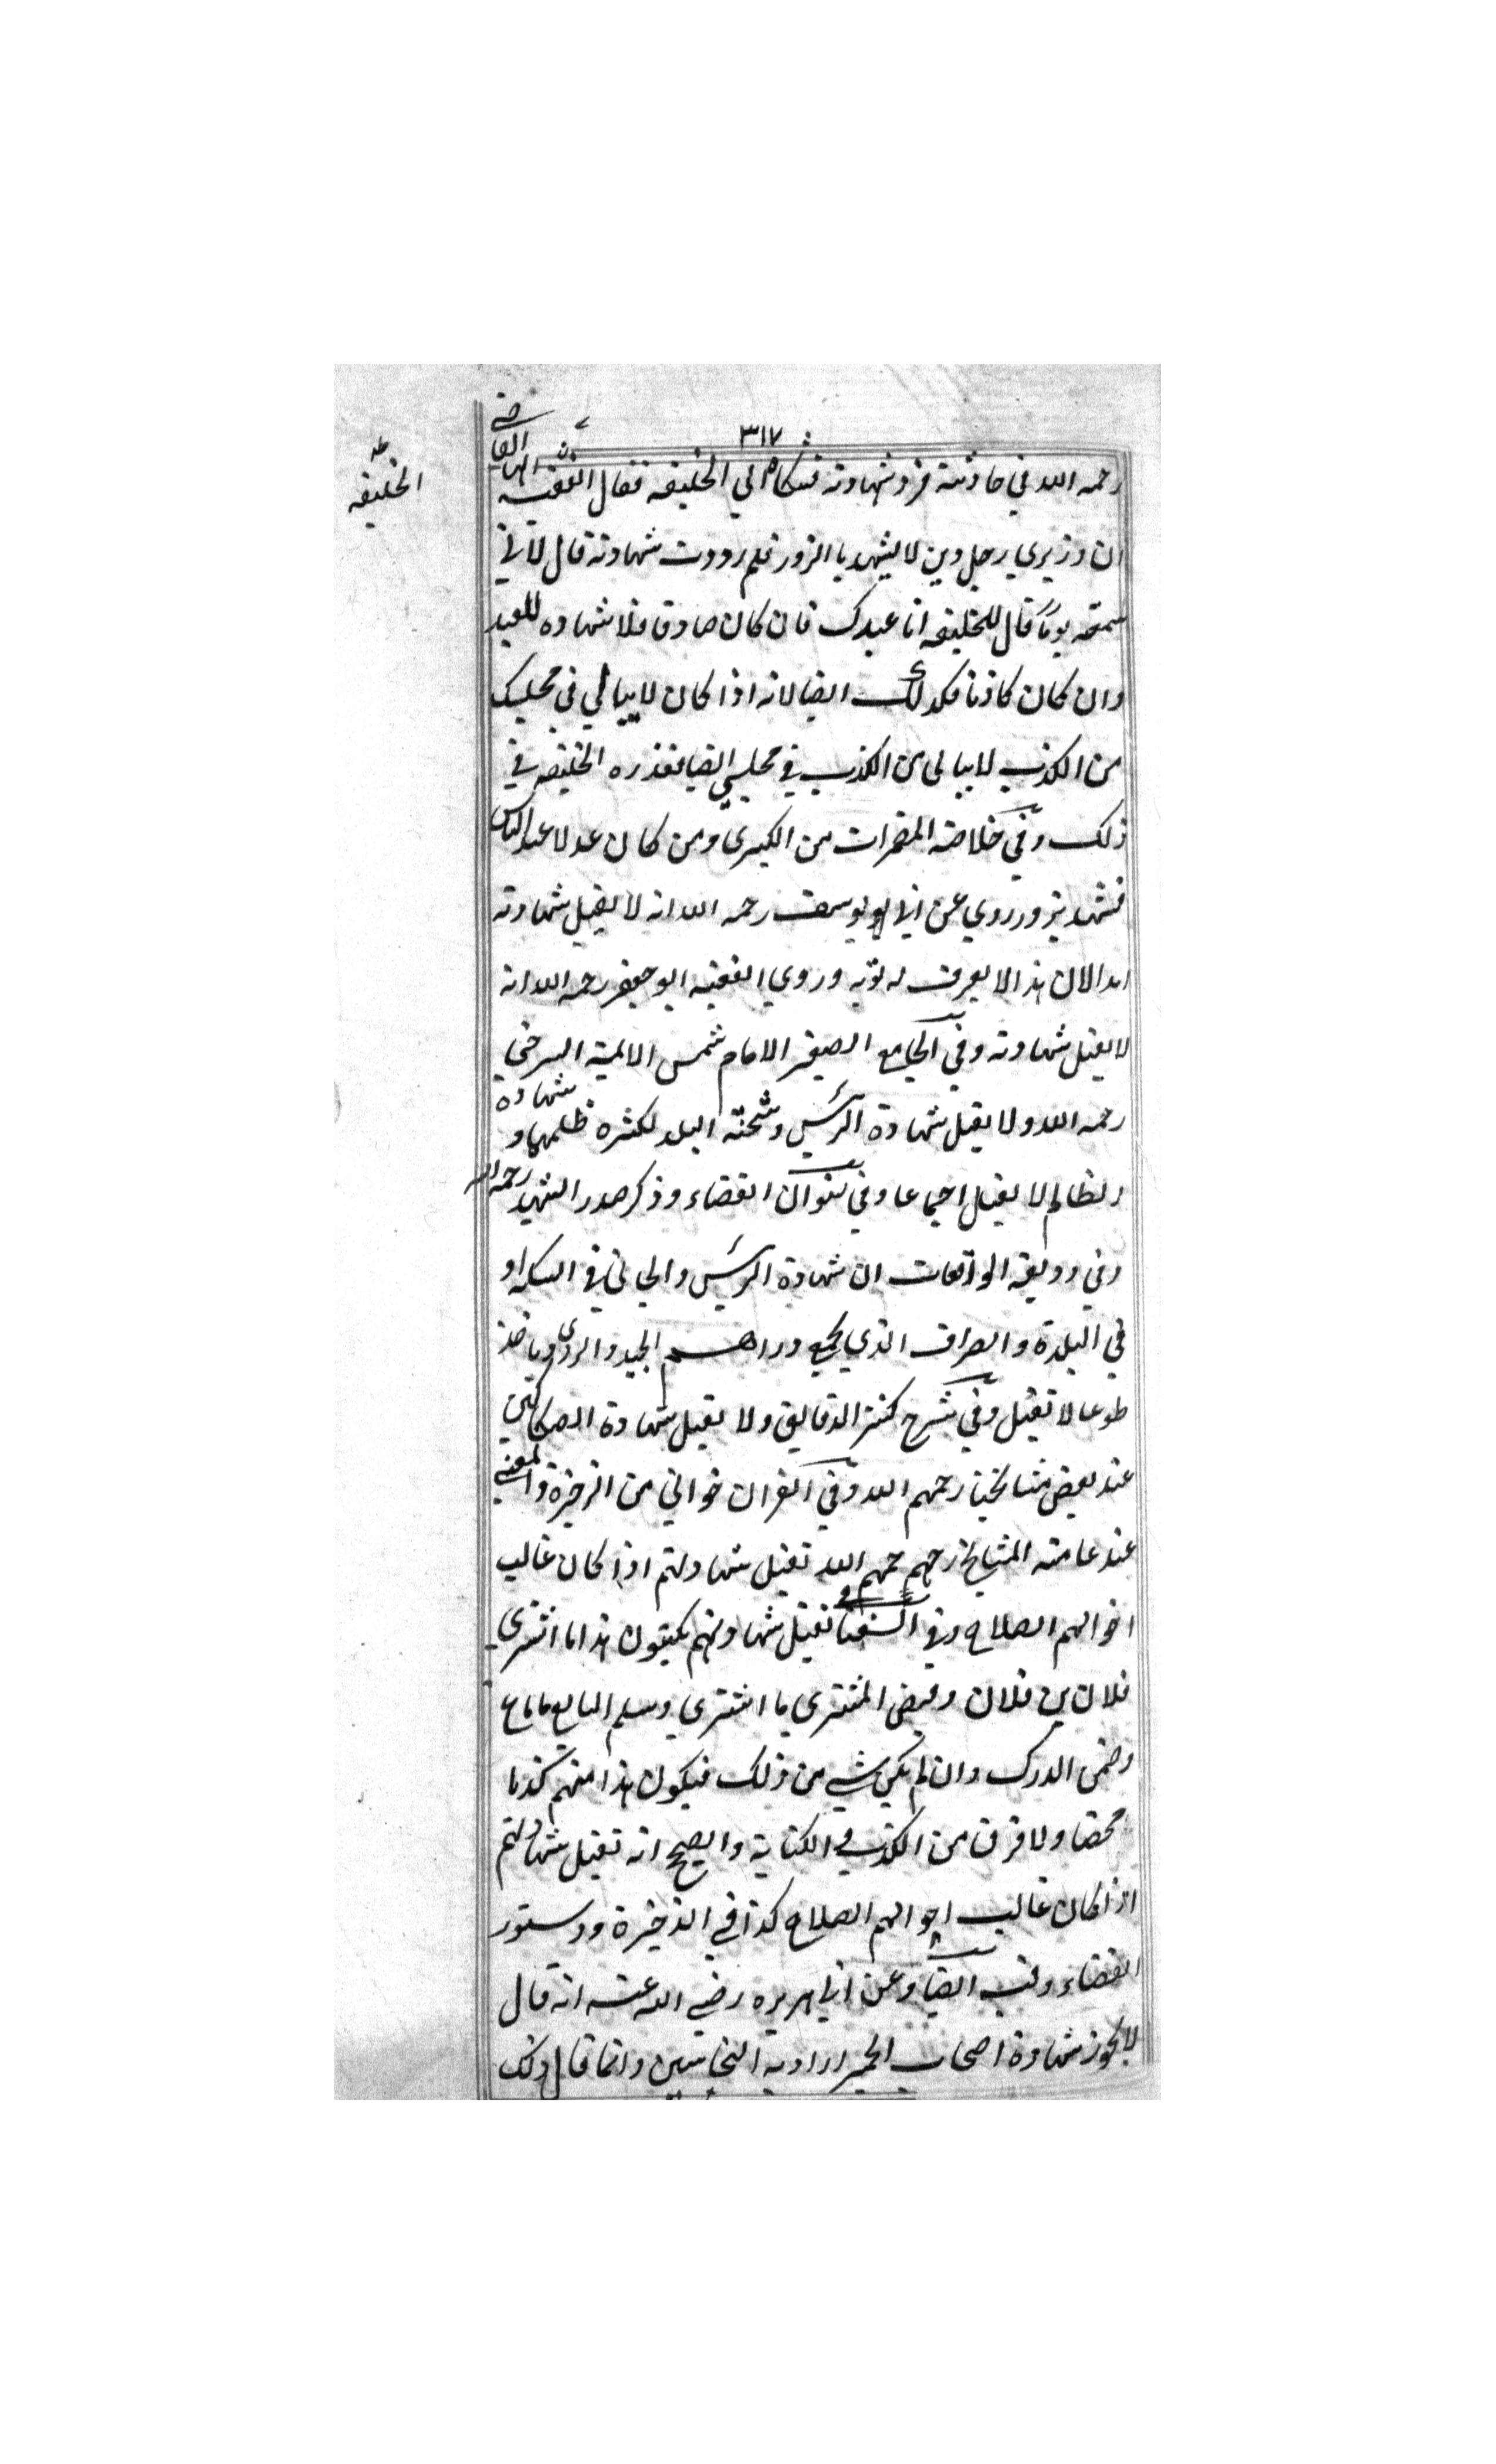 ٣١٧
رحمه الله في حادثة فرد شهادته فشكاه الي الخليفه فقال الفقيه
ايها القاضي
الخليفه
ان وزيري رجل دين لا يشهد بالزور فلم رددت شهادته قال لاني
سمعته يوما قال للخليفه انا عبدك فان كان صادقا فلا شهاده للعبد
وان كان كاذبا فكذلك ايضا لانه اذا كان لا يبالي في مجلسك
من الكذب لا يبالي من الكذب في مجلسي ايضا فعذره الخليفه في
ذلك وفي خلاصة المضمرات من الكبرى ومن كان عدلا عند الناس
فشهد بزور روي عن ابي يوسف رحمه الله انه لا يقبل شهادته
ابدا لان هذا لا يعرف له توبه وروي الفقيه ابو جعفر رحمه الله انه
لا يقبل شهادته وفي الجامع الصغير الامام شمس الائمة السرخسي
رحمه الله ولا يقبل شهادة الرئيس وشحنة البلد لكثرة ظلمهما و شهادة
الظالم لا يقبل اجماعا وفي عنوان القضاء وذكر صدر الشهيد رحمه الله
وفي وديعة الواقعات ان شهادة الرئيس والجابي في السكه او
في البلدة والصراف الذي يجمع دراهم الجيد والردي وياخذ
طوعا لا تقبل وفي شرح كنز الدقايق ولا يقبل شهادة الصكاكين
عند بعض مشايخنا رحمهم الله وفي القران خواني من الذخيرة والمغني
عند عامة المشايخ رحمهم الله تقبل شهادتهم اذا كان غالب
احوالهم الصلاح وفي تقبل شهادتهم يكتبون هذا ما اشترى
فلان بن فلان وقبض المشتري ما اشترى وسلم البايع ما باع
وضمن الدرك وان لم يكن شي من ذلك فيكون هذا منهم كذبا
محضا ولا فرق من الكذب في الكتابة والصحيح انه تقبل شهادتهم
اذا كان غالب احوالهم الصلاح كذا في الذخيرة ودستور
القضاء وفيه ايضا وعن ابي هريره رضي الله عنه انه قال
لا يجوز شهادة اصحاب الحمير اراد به النخاسين وانما قال ذلك